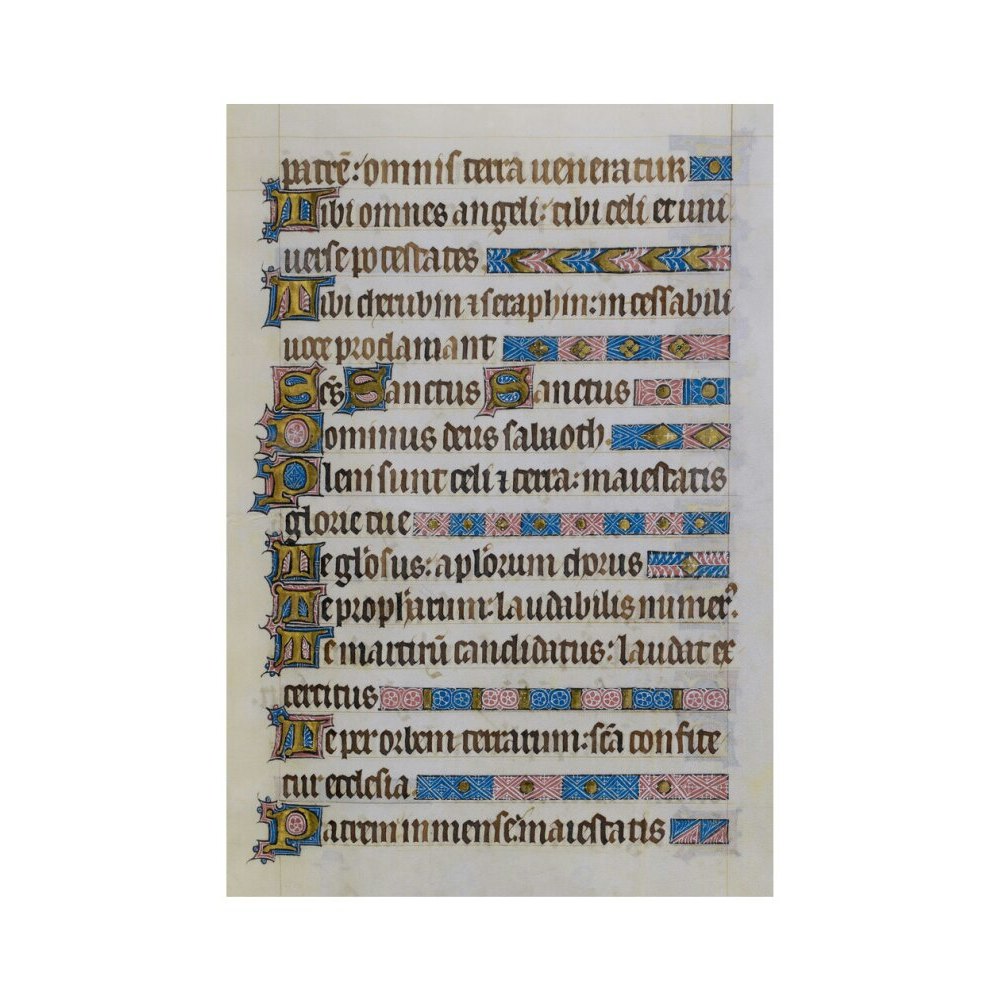 patrē: omnis terra ueneratur
Tibi omnes angeli: tibi celi et uni
uerse potestates.
Tibi cherubin ⁊ seraphin: incessabili
uoce proclamant
Scs̄ Sanctus Sanctus
Dominus deus sabaoth.
Pleni sunt celi ⁊ terra: maiestatis
glorie tue
Te gl'osus: apl'orum chorus
Te prophetarum: laudabilis numerꝰ.
Te martirū candidatus: laudat ex
ercitus
Te per orbem terrarum: scā confite
tur ecclesia.
Patrem inmense: maiestatis